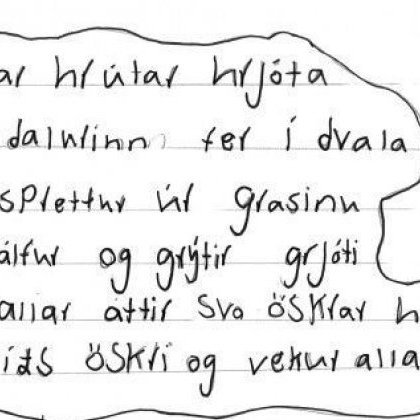 ar hrútar hrjóta
dalurinn fer í dvala
sprettur úr grasinu
álfur og grýtir grjóti
allar áttir svo öskrar h
öskri og vekur alla